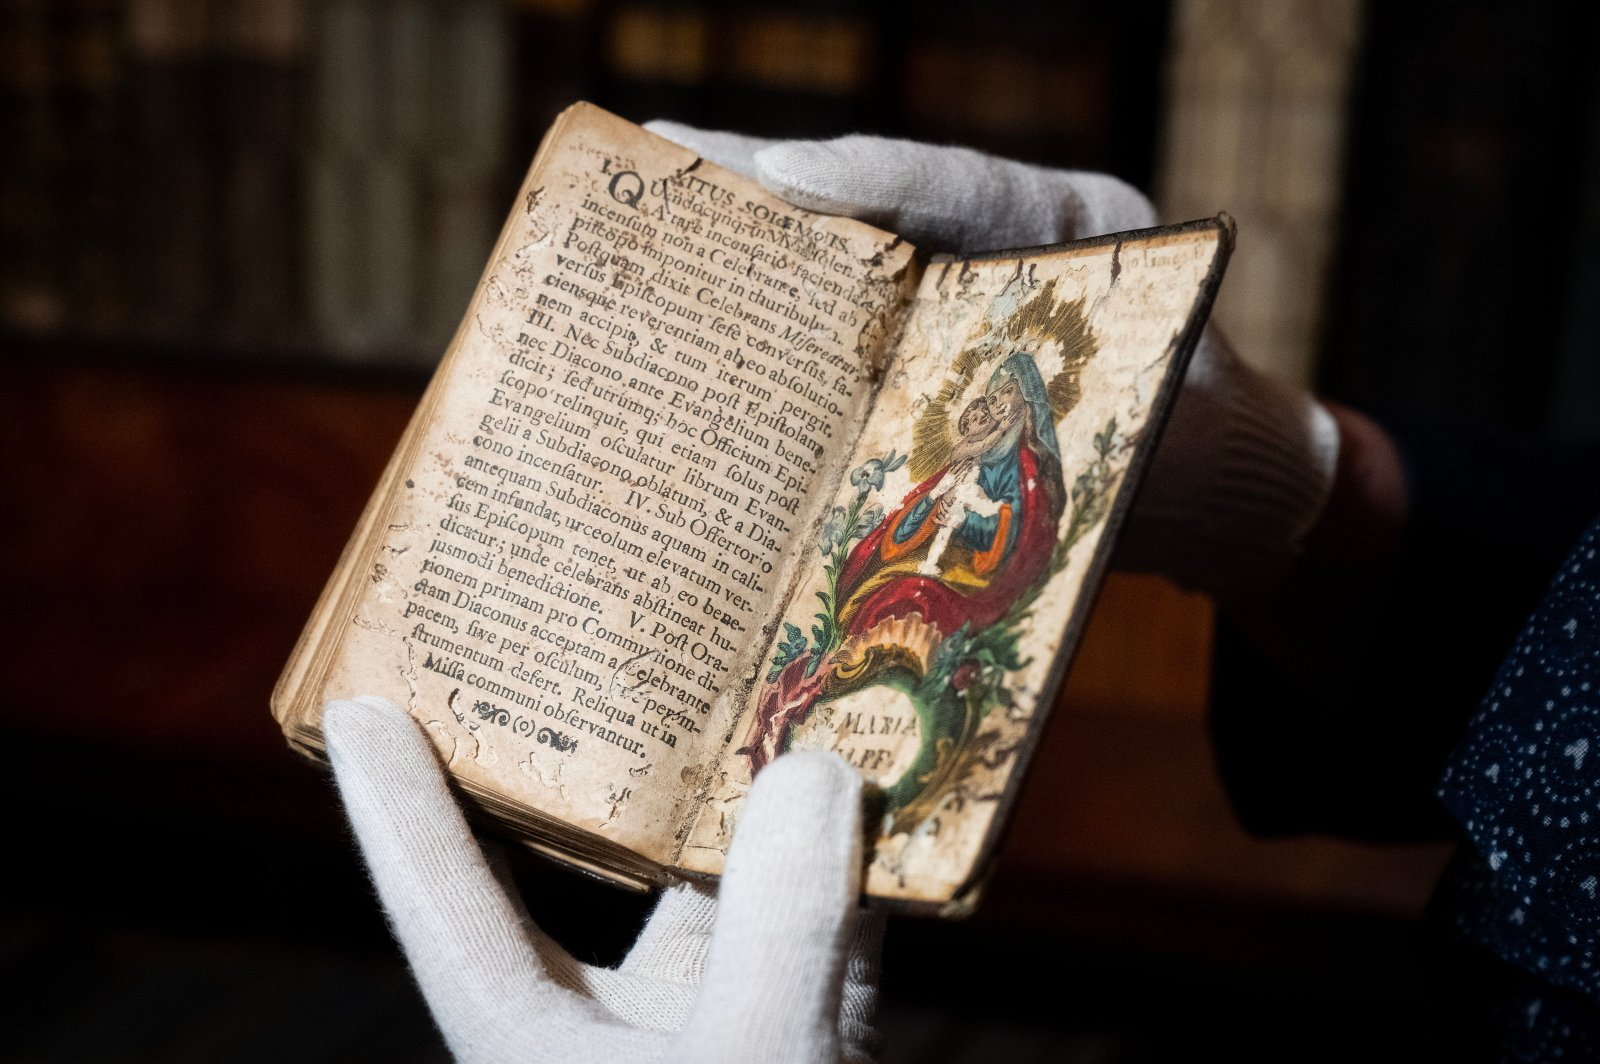 RITUS SOLEMNIS.
I. QUandocunq; in Missa solen.
Altare incensatio facienda,
incensum non a Celebrante, sed ab
piscopo imponitur in thuribulum.
Postquam dixit Celebrans Misereatur
versus Episcopum sese conversus, fa-
ciensque reverentiam ab eo absolutio-
nem accipit, & tum iterum pergit.
III. Nec Subdiacono post Epistolam
nec Diacono ante Evangelium bene-
dicit; sed utrumq; hoc Officium Epi-
scopo relinquit, qui etiam solus post
Evangelium osculatur librum Evan-
gelii a Subdiacono oblatum, & a Dia-
cono incensatur. IV. Sub Offertorio
antequam Subdiaconus aquam in cali-
cem infundat, urceolum elevatum ver-
sus Episcopum tenet, ut ab eo bene-
dicatur; unde celebrans abstineat hu-
jusmodi benedictione. V. Post Ora-
tionem primam pro Communione di-
ctam Diaconus acceptam a Celebrante
pacem, sive per osculum, sive per in-
strumentum defert. Reliqua ut in
Missa communi observantur.
(o)
S. MARIA